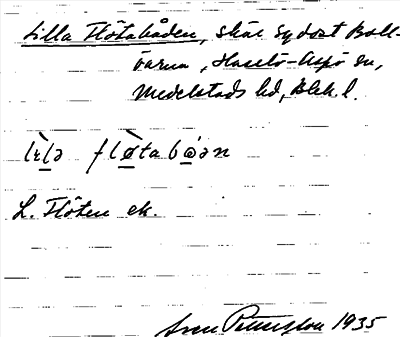 Lilla Flötabåden, skär sydost Boll-
öarna, Hasslö-Aspö sn,
Medelstads hd, Blek. l.
lɪ̀lə flø̀tabå̀ən
L. Flöten ek.
Sven Pettersson 1935